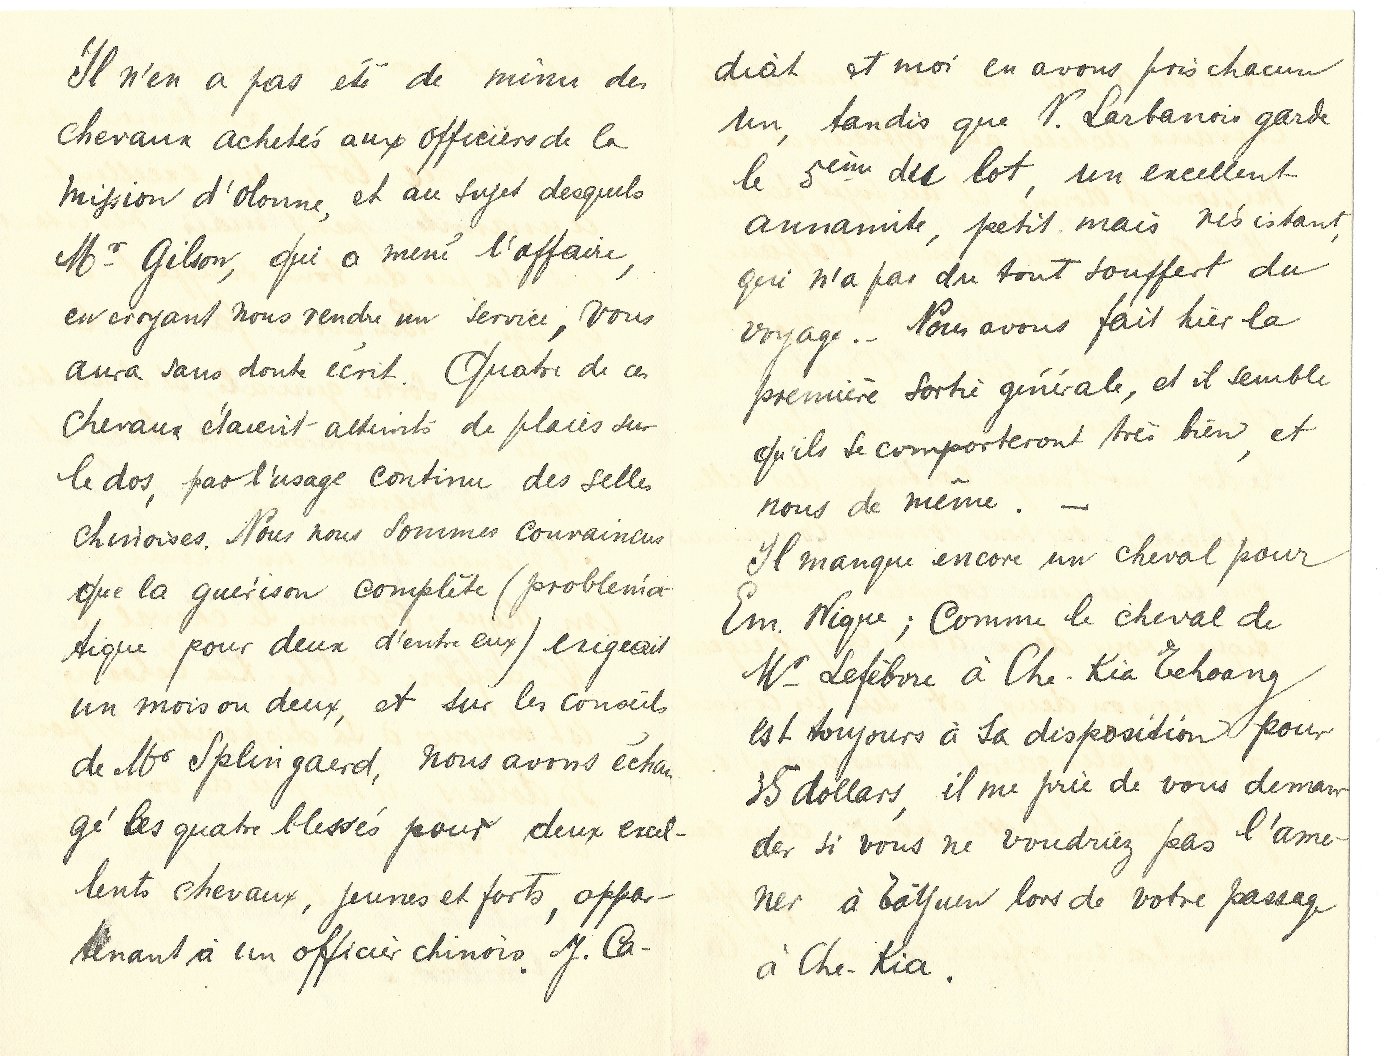 Il n'en a pas été de même des
chevaux achetés aux officiers de la
mission d'Olonne, et au sujet desquels
Mr Gilson, qui a mené l'affaire,
en croyant nous rendre un service, vous
aura sans doute écrit. Quatre de ces
chevaux étaient atteints de plaies sur
le dos, par l'usage continu des selles
chinoises. Nous nous sommes convaincus
que la guérison complète (probléma-
tique pour deux d'entre eux) exigeait
un mois ou deux, et sur les conseils
de Mr Splingaerd, nous avons échan
gé les quatre blessés pour deux excel-
lents chevaux, jeunes et forts, appar-
tenant à un officier chinois. J. Ca-
diat et moi en avons pris chacun
un, tandis que V. Larbanois garde
le 5ème du lot, un excellent
annamite, petit mais résistant,
qui n'a pas du tout souffert du
voyage.- Nous avons fait hier la
première sortie générale, et il semble
qu'ils se comporteront très bien, et
nous de même. —
Il manque encore un cheval pour
Em. Nique ; Comme le cheval de
Mr Lefèbvre à Che-Kia Tchoang
est toujours à sa disposition pour
35 dollars, il me prie de vous deman-
der si vous ne voudriez pas l'ame-
ner à TâiYuen lors de votre passage
à Che-Kia.